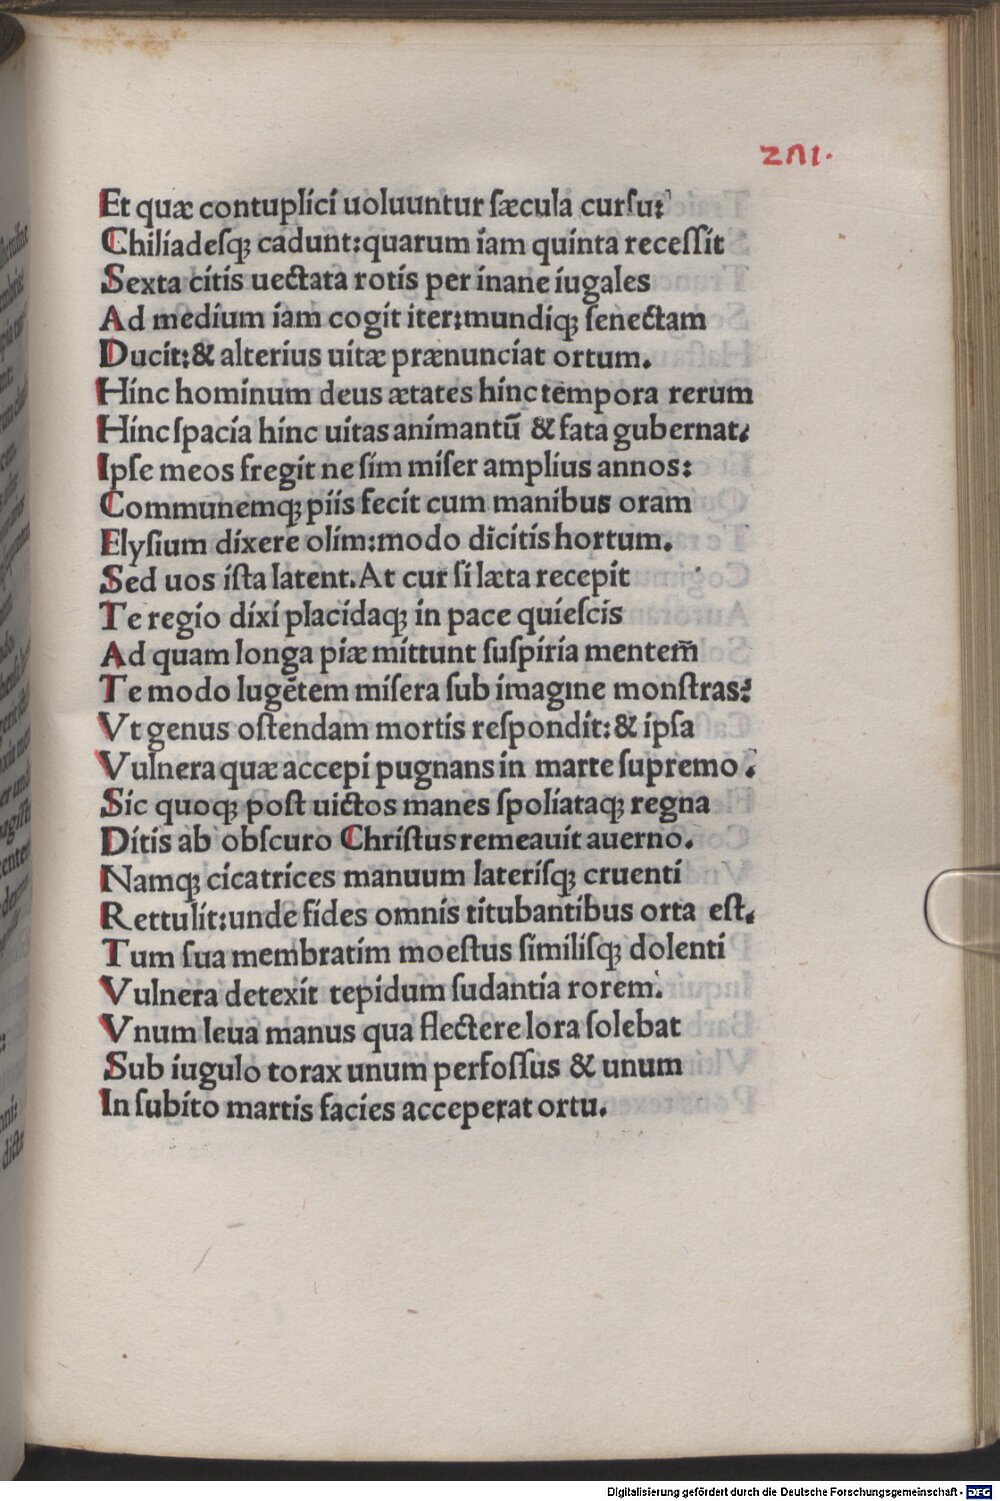 Et quæ contuplici uoluuntur ſæcula curſu:
Chiliadeſqꝫ cadunt:quarum iam quinta receſſit
Sexta citis uectata rotis per inane iugales
Ad medium iam cogit iter:mundiqꝫ ſenectam
Ducit:& alterius uitæ prænunciat ortum.
Hinc hominum deus ætates hinc tempora rerum
Hinc ſpacia hinc uitas animantū & fata gubernat.
Ipſe meos fregit ne ſim miſer amplius annos:
Communemqꝫ piis fecit cum manibus oram
Elyſium dixere olim:modo dicitis hortum.
Sed uos iſta latent.At cur ſi læta recepit
Te regio dixi placidaqꝫ in pace quieſcis
Ad quam longa piæ mittunt ſuſpiria mentem̄
Te modo lugētem miſera ſub imagine monſtras:
Vt genus oſtendam mortis reſpondit:& ipſa
Vulnera quæ accepi pugnans in marte ſupremo.
Sic quoqꝫ poſt uictos manes ſpoliataqꝫ regna
Ditis ab obſcuro Chriſtus remeauit auerno.
Namqꝫ cicatrices manuum lateriſqꝫ cruenti
Rettulit:unde fides omnis titubantibus orta eſt.
Tum ſua membratim moeſtus ſimiliſqꝫ dolenti
Vulnera detexit tepidum ſudantia rorem.
Vnum leua manus qua flectere lora ſolebat
Sub iugulo torax unum perfoſſus & unum
In ſubito martis facies acceperat ortu.
Digitalisierung gefördert durch die Deutsche Forschungsgemeinschaft - DFG